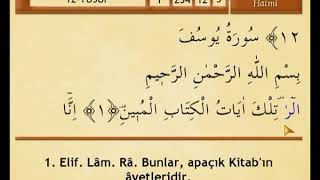 12-Yusuf 1 234 12 Hatmi
﴿١٢﴾ سُورَةُ يُوسُفَ
بِسْمِ اللهِ الرَّحْمٰنِ الرَّحِيمِ
الٓرٰ تِلْكَ اٰيَاتُ الْكِتَابِ الْمُبِينِ ﴿١﴾ اِنَّٓا
1. Elif. Lâm. Râ. Bunlar, apaçık Kitab'ın
âyetleridir.